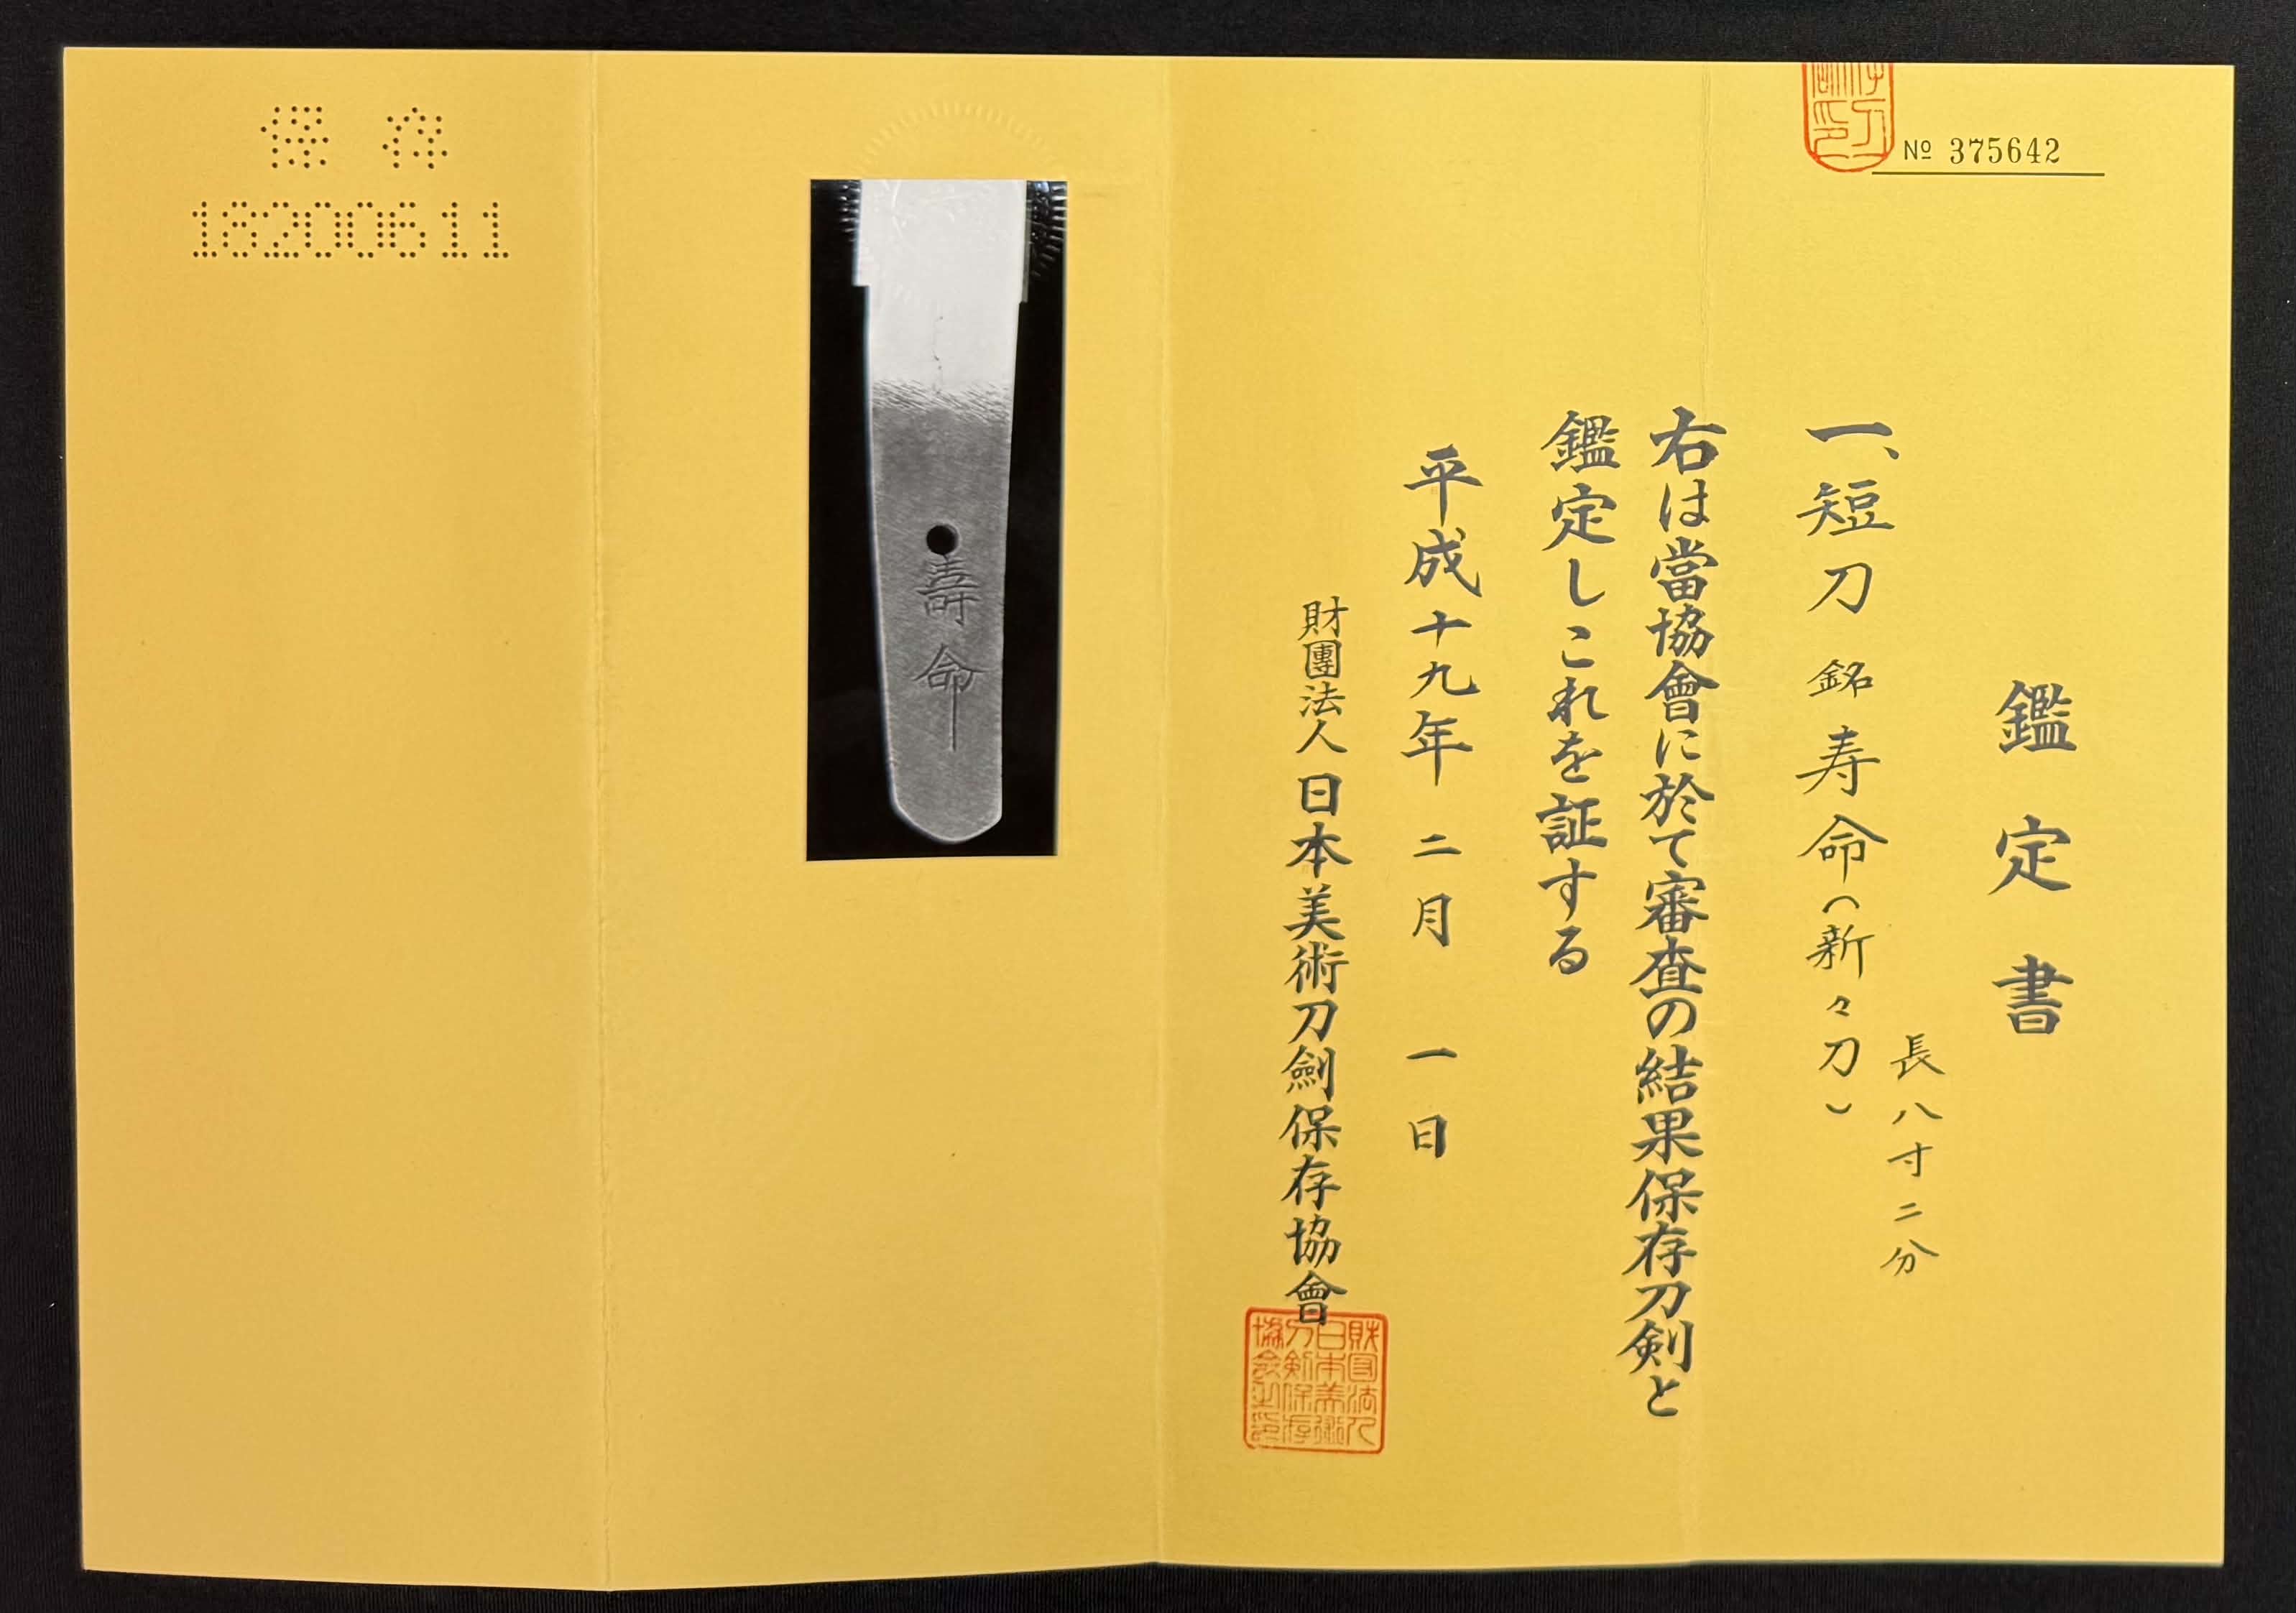 № 375642
鑑定書
長八寸二分
一、短刀 銘 寿命(新々刀)
右は當協會に於て審査の結果保存刀剣と
鑑定しこれを証する
平成十九年 二月 一日
財團法人 日本美術刀劍保存協會
財団法人
日本美術
刀剣保存
協会之印
壽命
保存
18200611